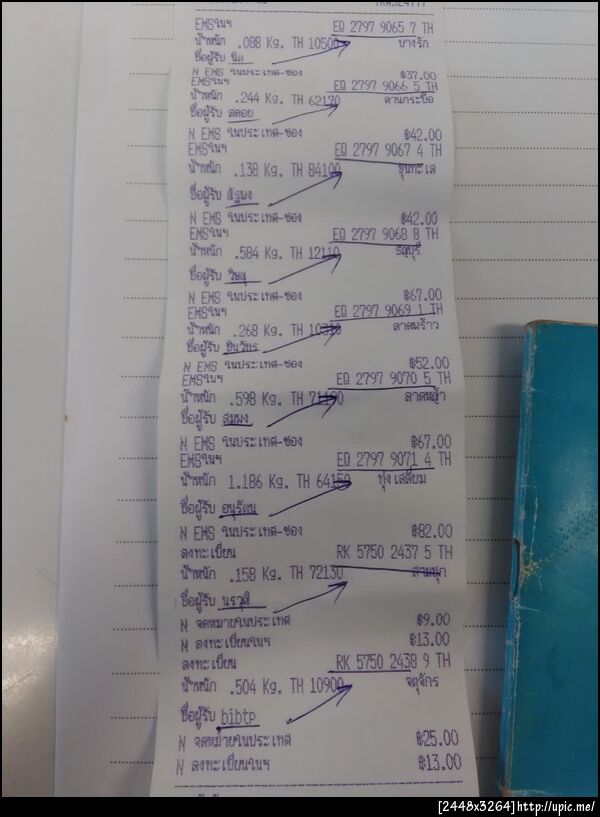 EMSในฯ EQ 2797 9065 7 TH
น้ำหนัก .088 Kg. TH 10500 บางรัก
ชื่อผู้รับ
N EMS ในประเทศ-ซอง ฿37.00
EMSในฯ EQ 2797 9066 5 TH
น้ำหนัก .244 Kg. TH 62170 ลานกระบือ
ชื่อผู้รับ สดอย
N EMS ในประเทศ-ซอง ฿42.00
EMSในฯ EQ 2797 9067 4 TH
น้ำหนัก .138 Kg. TH 84100 ขุนทะเล
ชื่อผู้รับ
N EMS ในประเทศ-ซอง ฿42.00
EMSในฯ EQ 2797 9068 8 TH
น้ำหนัก .584 Kg. TH 12110 ธัญบุรี
ชื่อผู้รับ วิษณุ
N EMS ในประเทศ-ซอง ฿67.00
EMSในฯ EQ 2797 9069 1 TH
น้ำหนัก .268 Kg. TH 10310 ลาดพร้าว
ชื่อผู้รับ ชินวัทร
N EMS ในประเทศ-ซอง ฿52.00
EMSในฯ EQ 2797 9070 5 TH
น้ำหนัก .598 Kg. TH 71190 ลาดหญ้า
ชื่อผู้รับ สมพง
N EMS ในประเทศ-ซอง ฿67.00
EMSในฯ EQ 2797 9071 4 TH
น้ำหนัก 1.186 Kg. TH 64150 ทุ่งเสลี่ยม
ชื่อผู้รับ อนุรัตน
N EMS ในประเทศ-ซอง ฿82.00
ลงทะเบียน RK 5750 2437 5 TH
น้ำหนัก .158 Kg. TH 72130 สามชุก
ชื่อผู้รับ นรวุฒิ
N จดหมายในประเทศ ฿9.00
N ลงทะเบียนในฯ ฿13.00
ลงทะเบียน RK 5750 2438 9 TH
น้ำหนัก .504 Kg. TH 10900 จตุจักร
ชื่อผู้รับ bibtp
N จดหมายในประเทศ ฿25.00
N ลงทะเบียนในฯ ฿13.00
[2448x3264]http://upic.me/